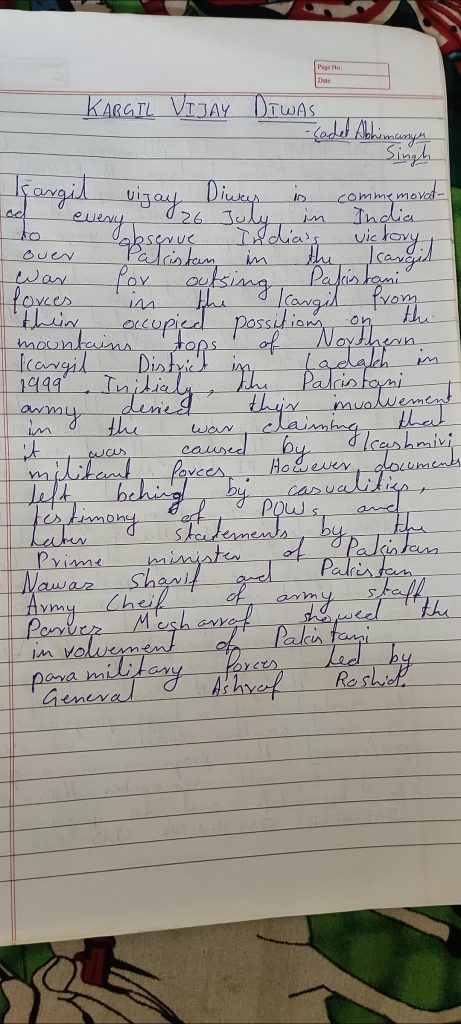 Page No.
Date
KARGIL VIJAY DIWAS
- Cadet Abhimanyu
Singh
Kargil vijay Diwas is commemorat-
ed every 26 July in India
to observe India's victory
over Pakistan in the Kargil
war for outsing Pakistani
forces in the Kargil from
their occupied possitions on the
mountains tops of Northern
Kargil District in Ladakh in
1999. Initialy, the Pakistani
army denied their involvement
in the war claiming that
it was caused by Kashmiri
militant forces. However documents
left behind by casualities,
testimony of POWs and
later statements by the
Prime minister of Pakistan
Nawaz Sharif and Pakistan
Army Cheif of army staff
Parvez Mesharraf showed the
involvement of Pakistani
paramilitary forces led by
General Ashraf Rashid.